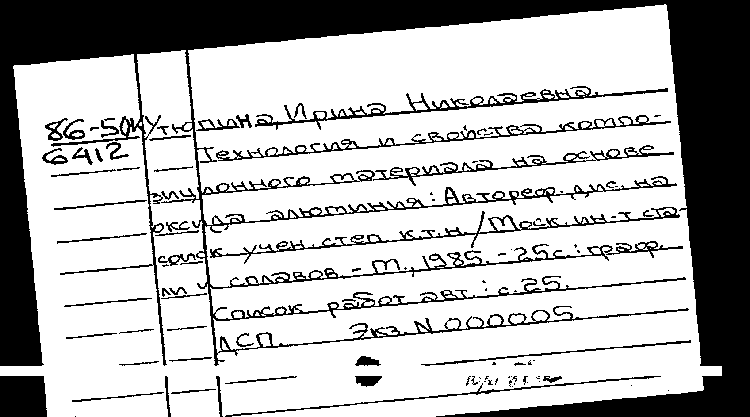 86-5/ Кутюпина, Ирина Николаевна.
6412 Технология и свойства компо-
зиционного материала на основе
оксида алюминия: Автореф. дис. на
соиск. учен. степ. к.т.н. / Моск. ин-т ста-
ли и сплавов. - М., 1985. - 25с.: граф.
Список работ авт.: с. 25.
ДСП. Экз. N 000005.